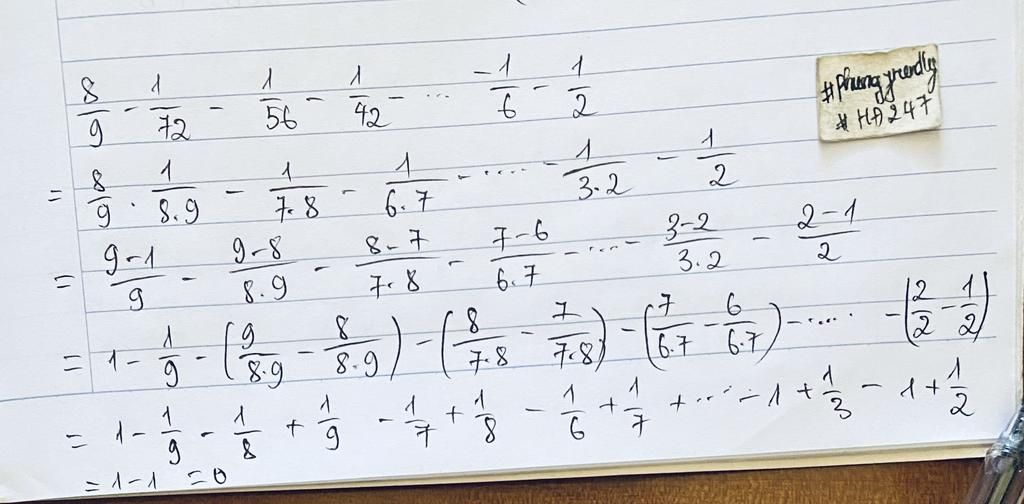 8/9 - 1/72 - 1/56 - 1/42 - ... -1/6 - 1/2
= 8/9 . 1/8.9 - 1/7.8 - 1/6.7 - .... - 1/3.2 - 1/2
= 9-1/9 - 9-8/8.9 - 8-7/7.8 - 7-6/6.7 - ... - 3-2/3.2 - 2-1/2
= 1 - 1/9 - (9/8.9 - 8/8.9) - (8/7.8 - 7/7.8) - (7/6.7 - 6/6.7) - ..... - (2/2 - 1/2)
= 1 - 1/9 - 1/8 + 1/9 - 1/7 + 1/8 - 1/6 + 1/7 + ... - 1 + 1/3 - 1 + 1/2
= 1 - 1 = 0
# HA247